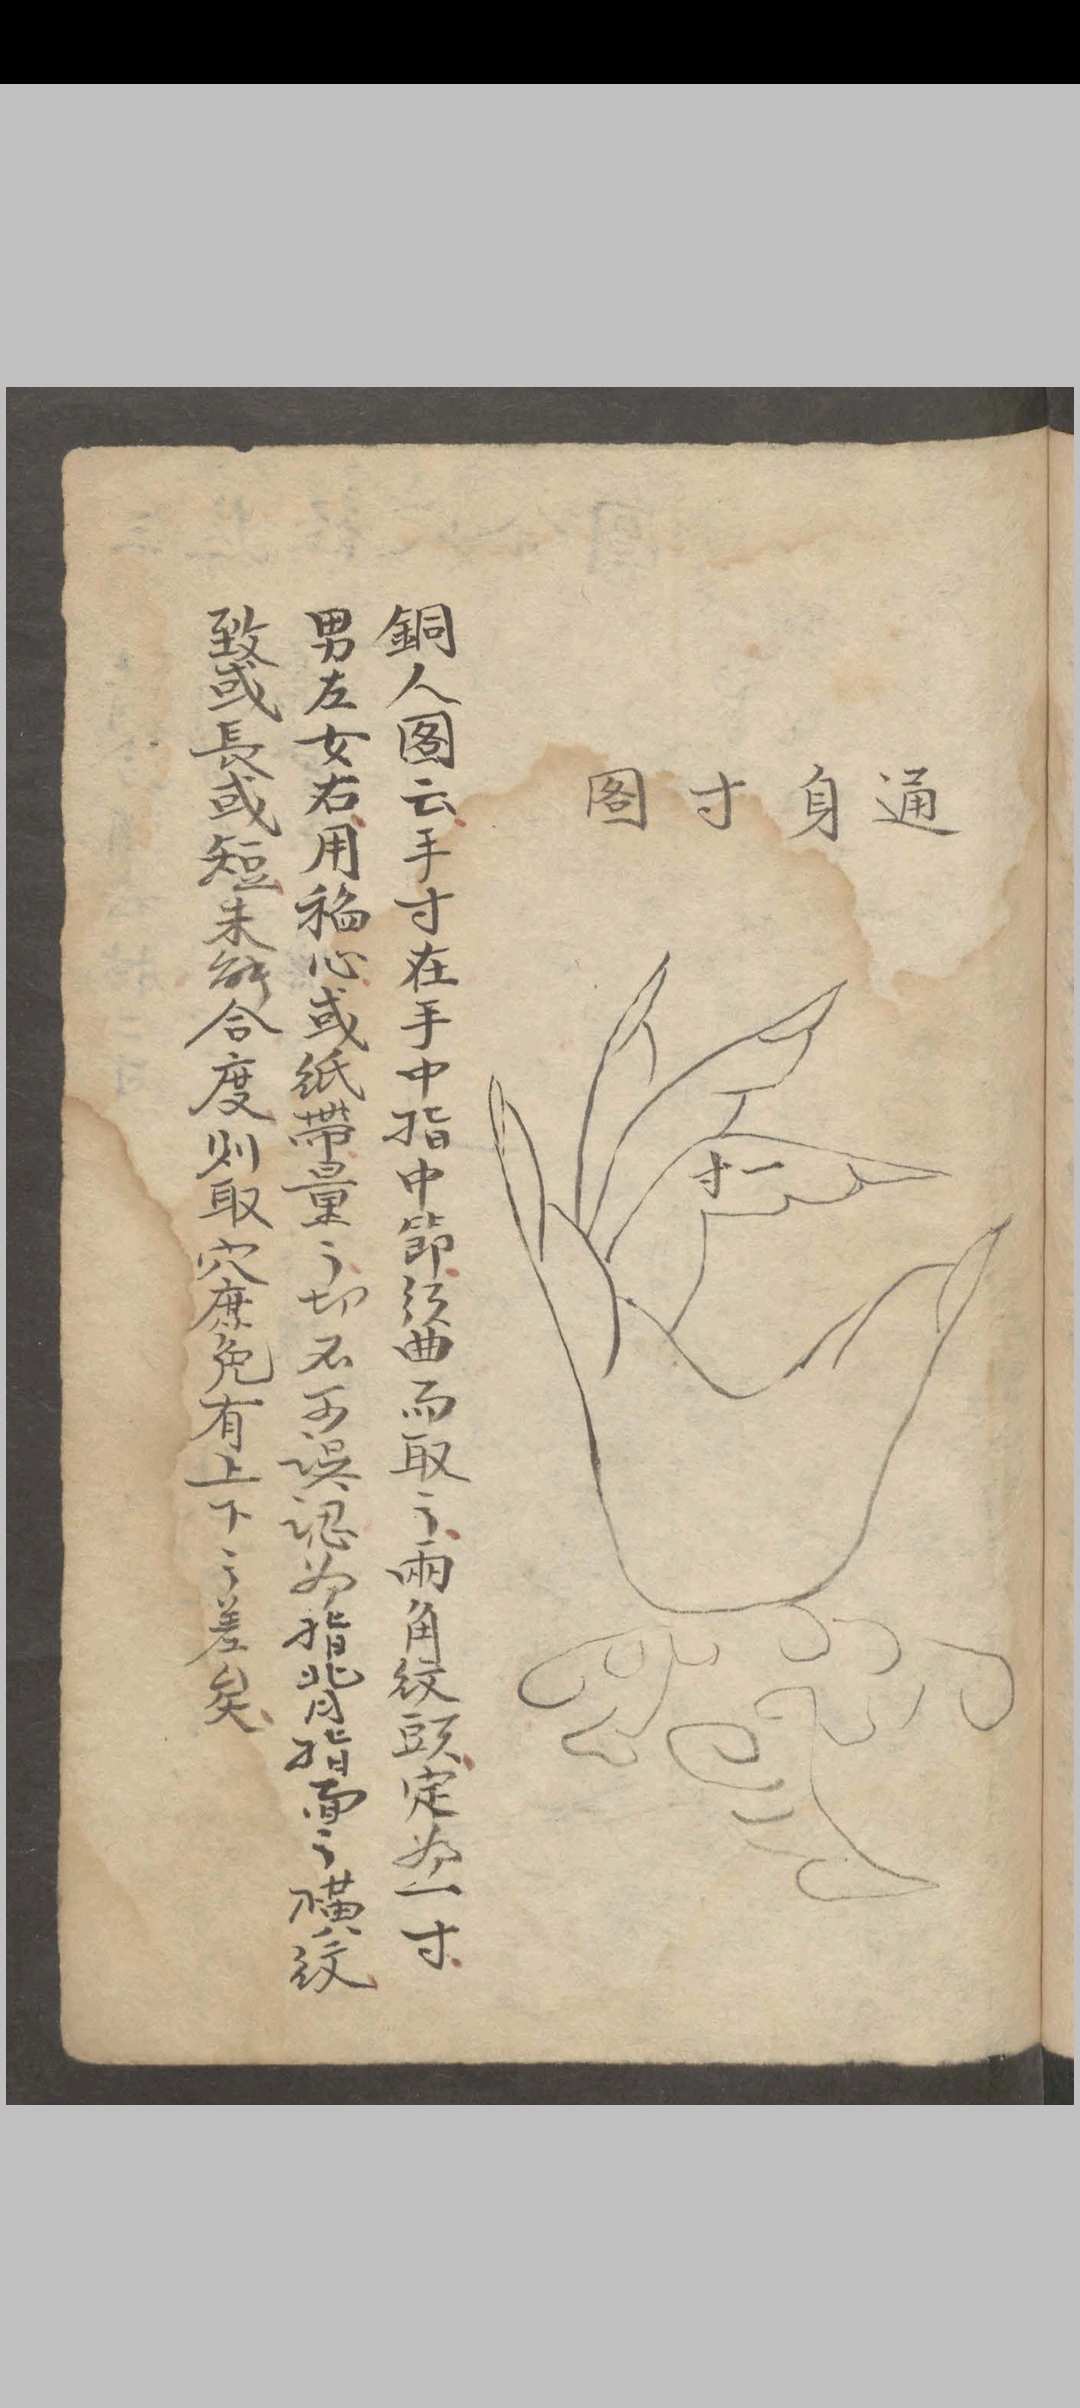 通身寸圖
一寸
銅人圖云手寸在手中指中節須曲而取之兩角紋頭定為一寸
男左女右用稲心或紙帶量之切不可誤認為指背指面之橫紋
致或長或短未能合度則取穴庶免有上下之差矣